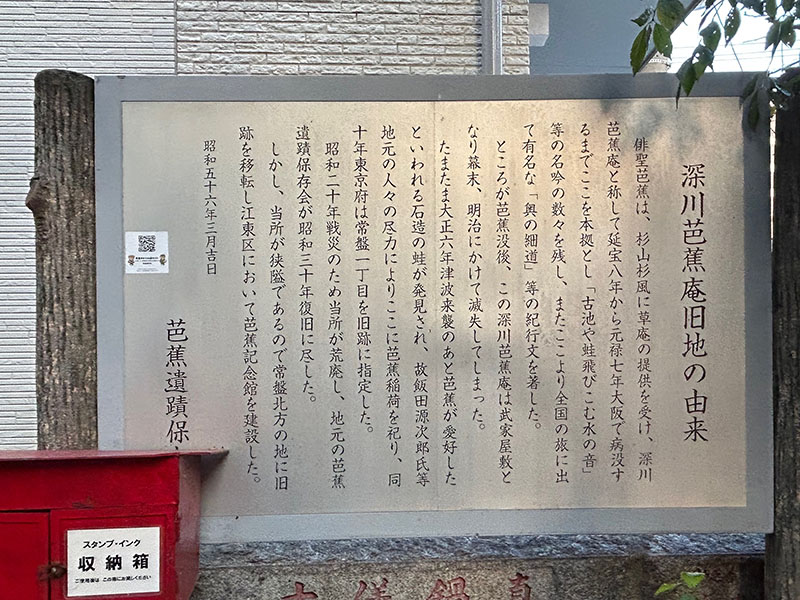 深川芭蕉庵旧地の由来
俳聖芭蕉は、杉山杉風に草庵の提供を受け、深川
芭蕉庵と称して延宝八年から元禄七年大阪で病没す
るまでここを本拠とし「古池や蛙飛びこむ水の音」
等の名吟の数々を残し、またここより全国の旅に出
て有名な「奥の細道」等の紀行文を著した。
ところが芭蕉没後、この深川芭蕉庵は武家屋敷と
なり幕末、明治にかけて滅失してしまった。
たまたま大正六年津波来襲のあと芭蕉が愛好した
といわれる石造の蛙が発見され、故飯田源次郎氏等
地元の人々の尽力によりここに芭蕉稲荷を祀り、同
十年東京府は常盤一丁目を旧跡に指定した。
昭和二十年戦災のため当所が荒廃し、地元の芭蕉
遺蹟保存会が昭和三十年復旧に尽した。
しかし、当所が狭隘であるので常盤北方の地に旧
跡を移転し江東区において芭蕉記念館を建設した。
昭和五十六年三月吉日
芭蕉遺蹟保
スタンプ・インク
収納箱
ご使用後は この箱にお戻しください